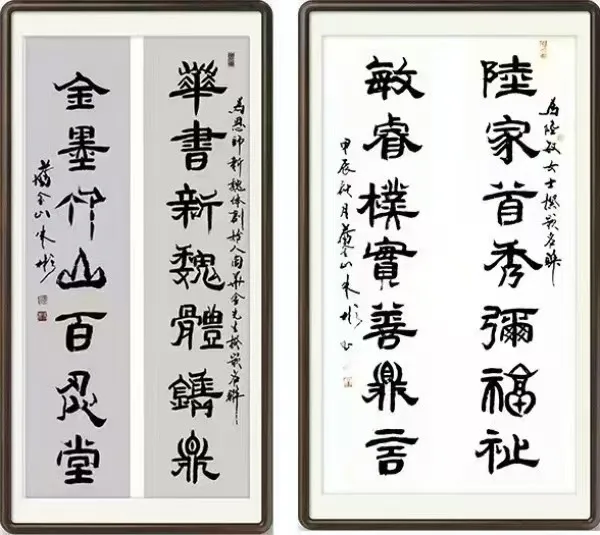 華書新魏體鐫鼎
為恩師新魏体創始人華金先生撰嵌名聯
金墨竹山百忍堂
舊金山朱彬
陸家首秀彌福祉
為陸敏女士撰嵌名聯
敏睿樸實善鼎言
甲辰秋月舊金山朱彬书